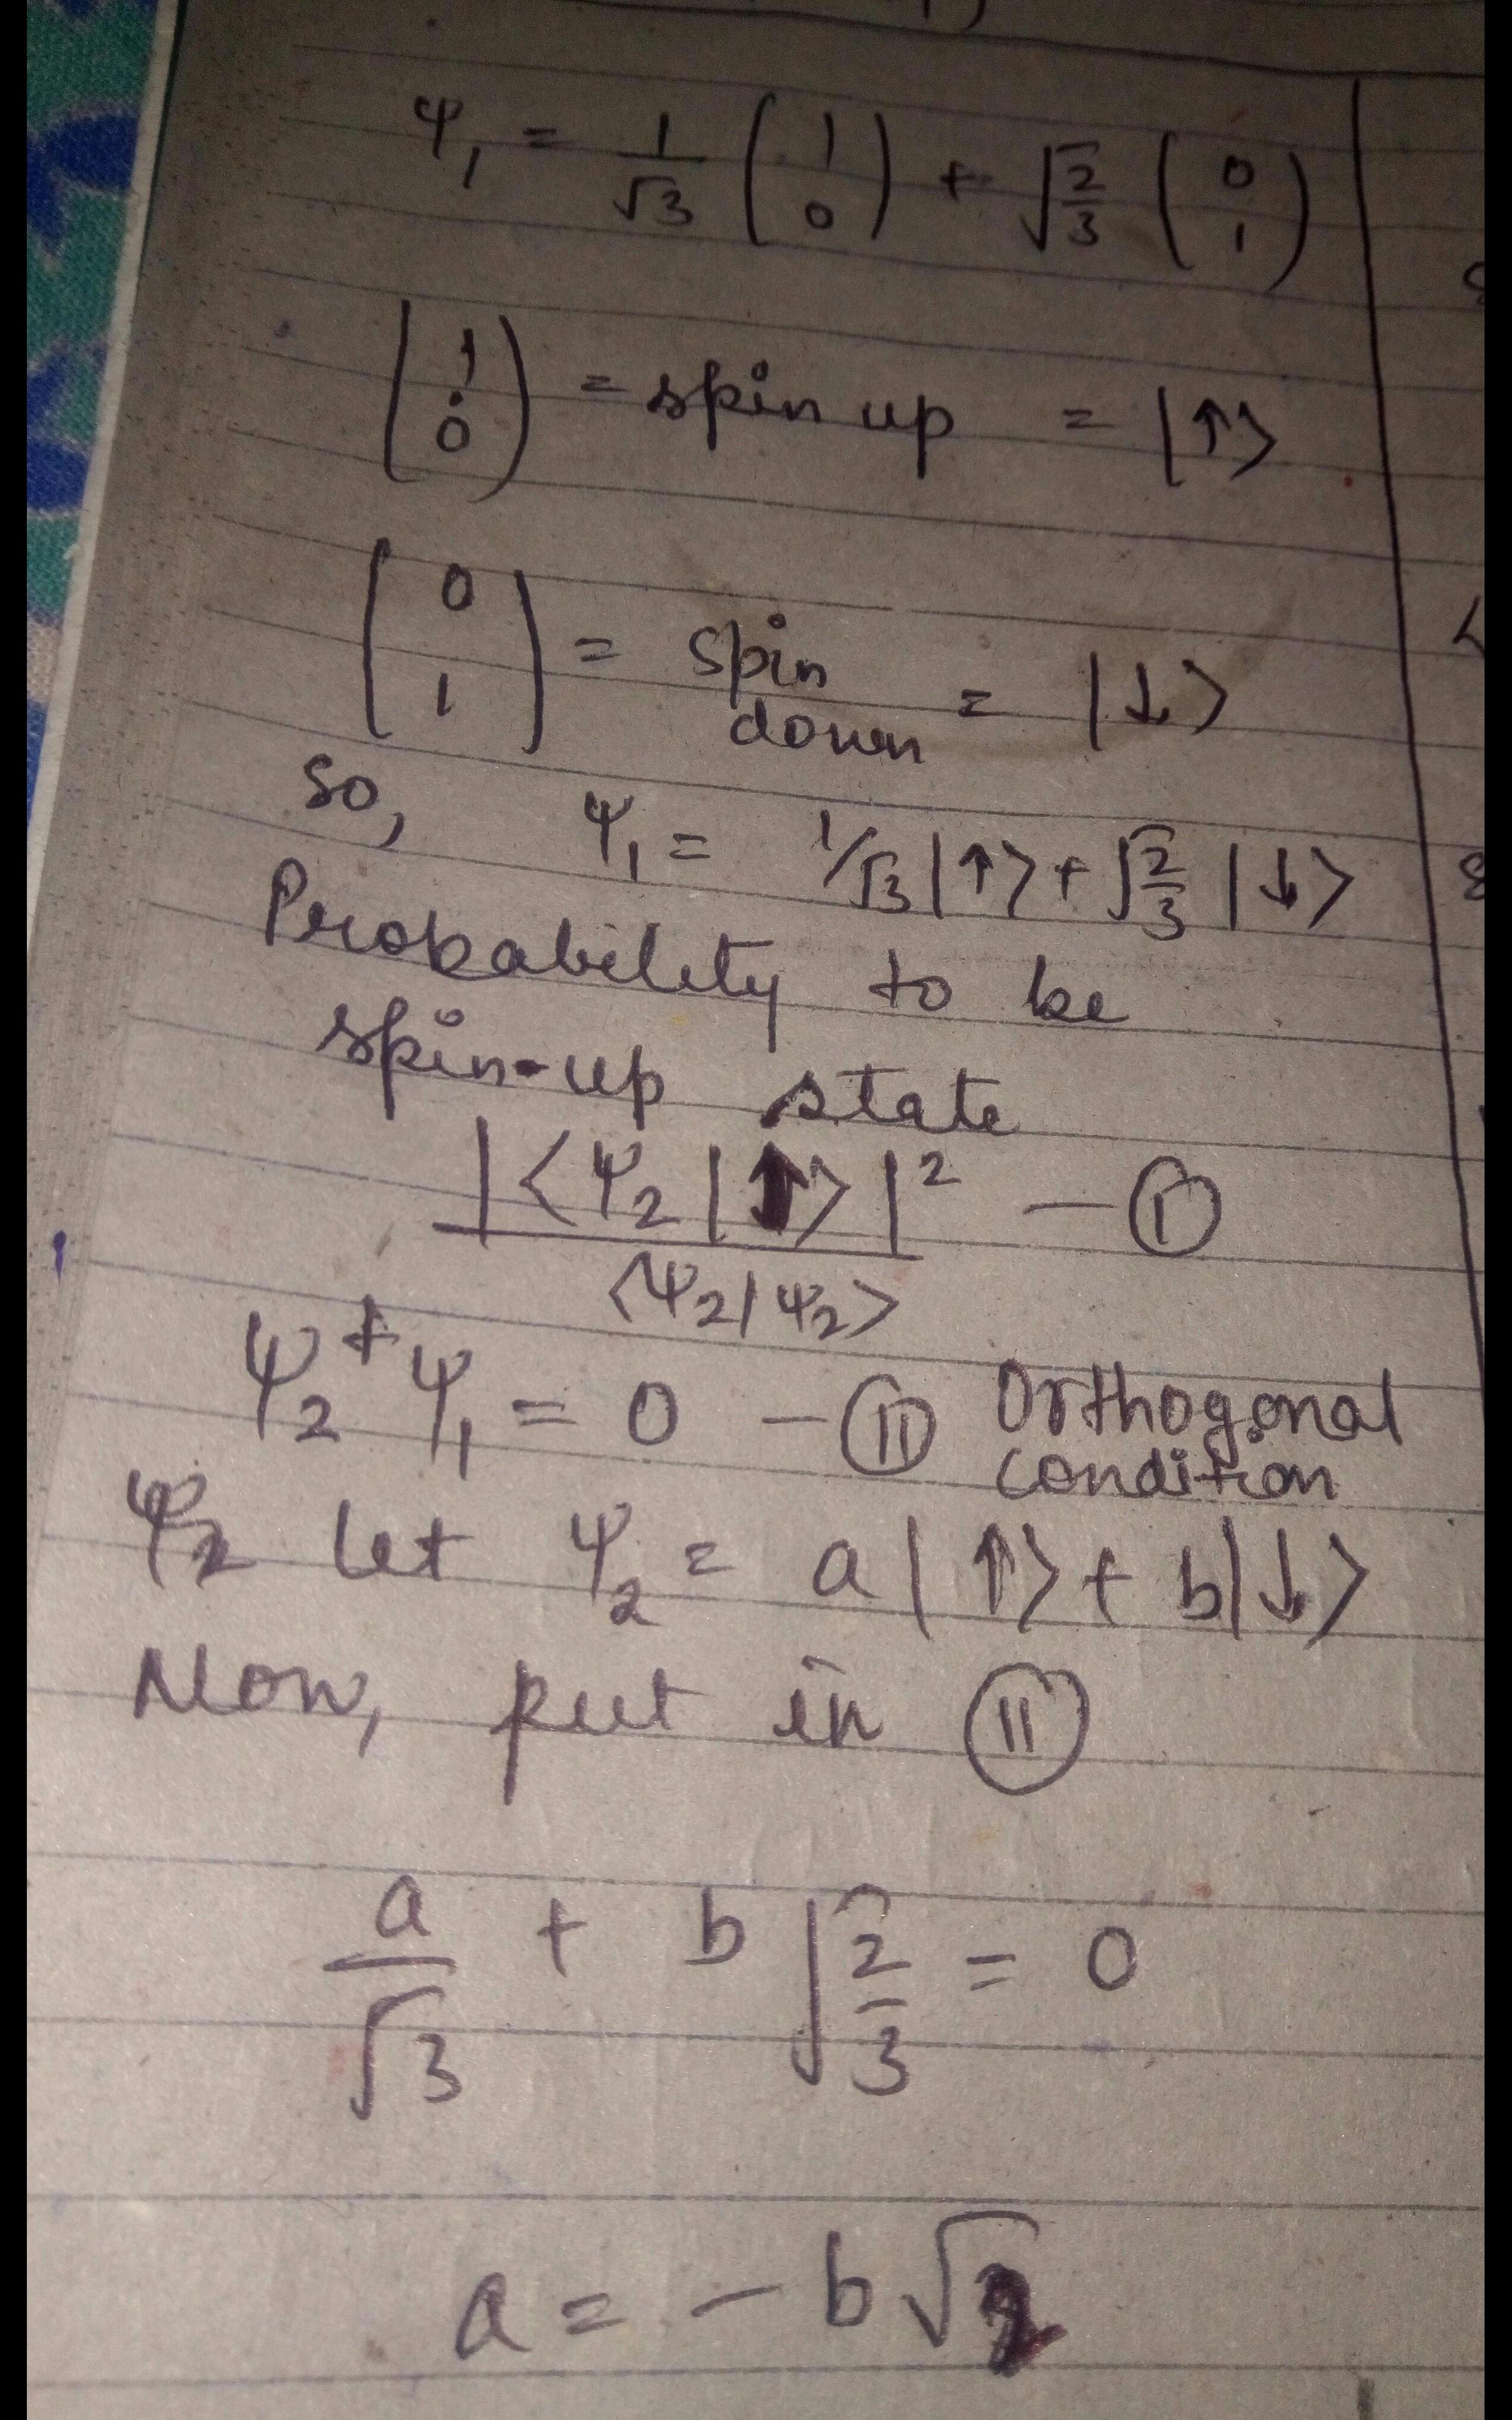 ψ₁ = 1/√3 (1 0) + √2/3 (0 1)
(1 0) = spin up = |↑>
(0 1) = spin down = |↓>
so, ψ₁ = 1/√3 |↑> + √2/3 |↓>
Probability to be
spin-up state
|<ψ₂|↑>|² — Ⓘ
<ψ₂|ψ₂>
ψ₂† ψ₁ = 0 — Ⓘ Ⓘ Orthogonal condition
ψ₂ let ψ₂ = a|↑> + b|↓>
Now, put in Ⓘ Ⓘ
a/√3 + b √2/3 = 0
a = - b√2